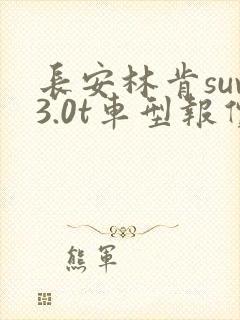 長安林肯suv
3.0t車型報價
熊軍